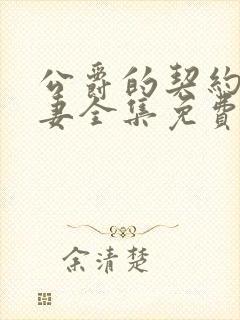 公爵的契約
妻全集免費
余清楚